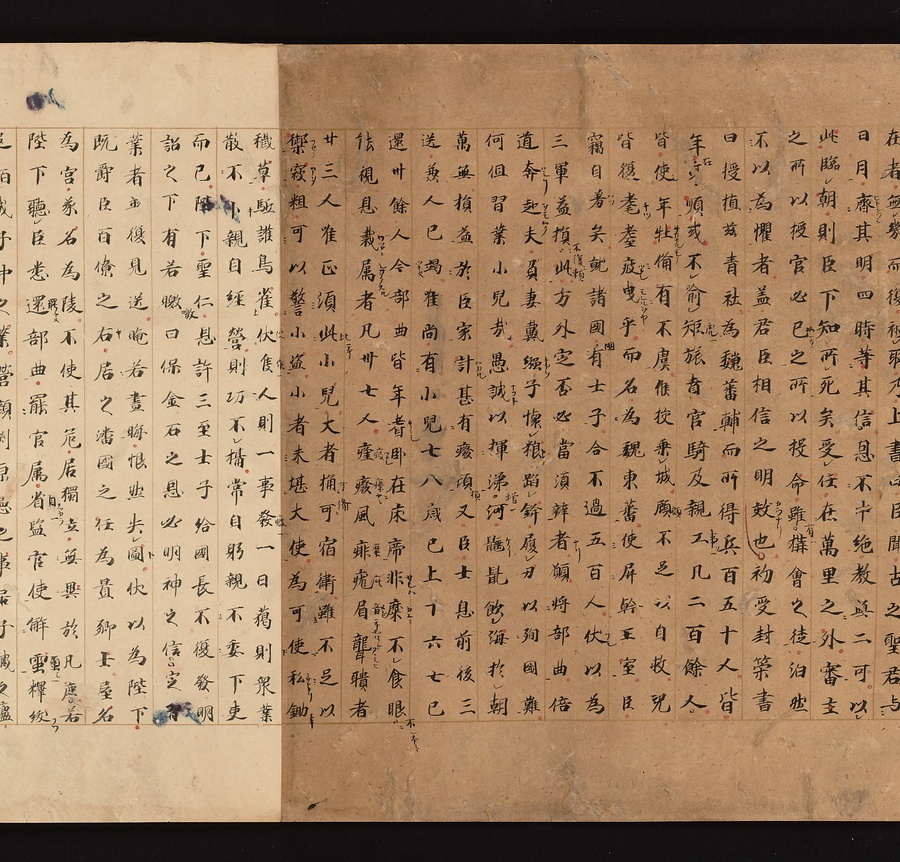 在者無幾而復被取乃上書曰臣聞古之聖君与
日月齊其明四時等其信恩不中絶教無二可以
此臨朝則臣下知所死矣受任在萬里之外審主
之所以授官必己之所以投命雖有構會之徒泊然
不以為懼者盖君臣相信之明效也初受封策書
曰授植茲青社為魏蕃輔而所得兵百五十人皆
年在順或不踰矩旅賁官騎及親工凡二百餘人
皆使年壮備有不虞撿挍乗城顧不足以自救况
皆復耄耋疲曳乎而名為魏東蕃使屏幹王室臣
竊自羞矣就諸國國有士子合不過五百人伏以為
三軍益損不復頼此方外定否必當須辦者願将部曲倍
道奔赴夫負妻戴襁子懐粮蹈鋒履刃以殉國難
何但習業小兒哉愚誠以揮涕増河鼷鼠飲海於朝
萬無損益於臣家計甚有廢損又臣士息前後三
送兼人已竭惟尚有小兒七八歳已上十六七已
還卅餘人今部曲皆年耆卧在床席非糜不食眼不
䏻視息裁属者凡卅七人疲瘵風靡疣盲聾聵者
廿三人惟正須此小兒大者可備宿衛雖不足以
禦寇粗可以警小盗小者未堪大使為可使耘鋤
穢草駈護鳥雀休候人則一事廢一日猟則衆業
散不親自經營則功不攝常自躬親不委下吏
而已陛下聖仁恩許三至士子給國長不復發明
詔之下有若皦日保金石之恩必明神之信定
業者並復見送晻若晝晦悵然失圖伏以為陛下
既爵臣百僚之右居之潘國之任為置卿士屋名
為宮冢名為陵不使其危居獨立無異於凡庶若
陛下聽臣悉還部曲罷官属省監官使解璽釋紱